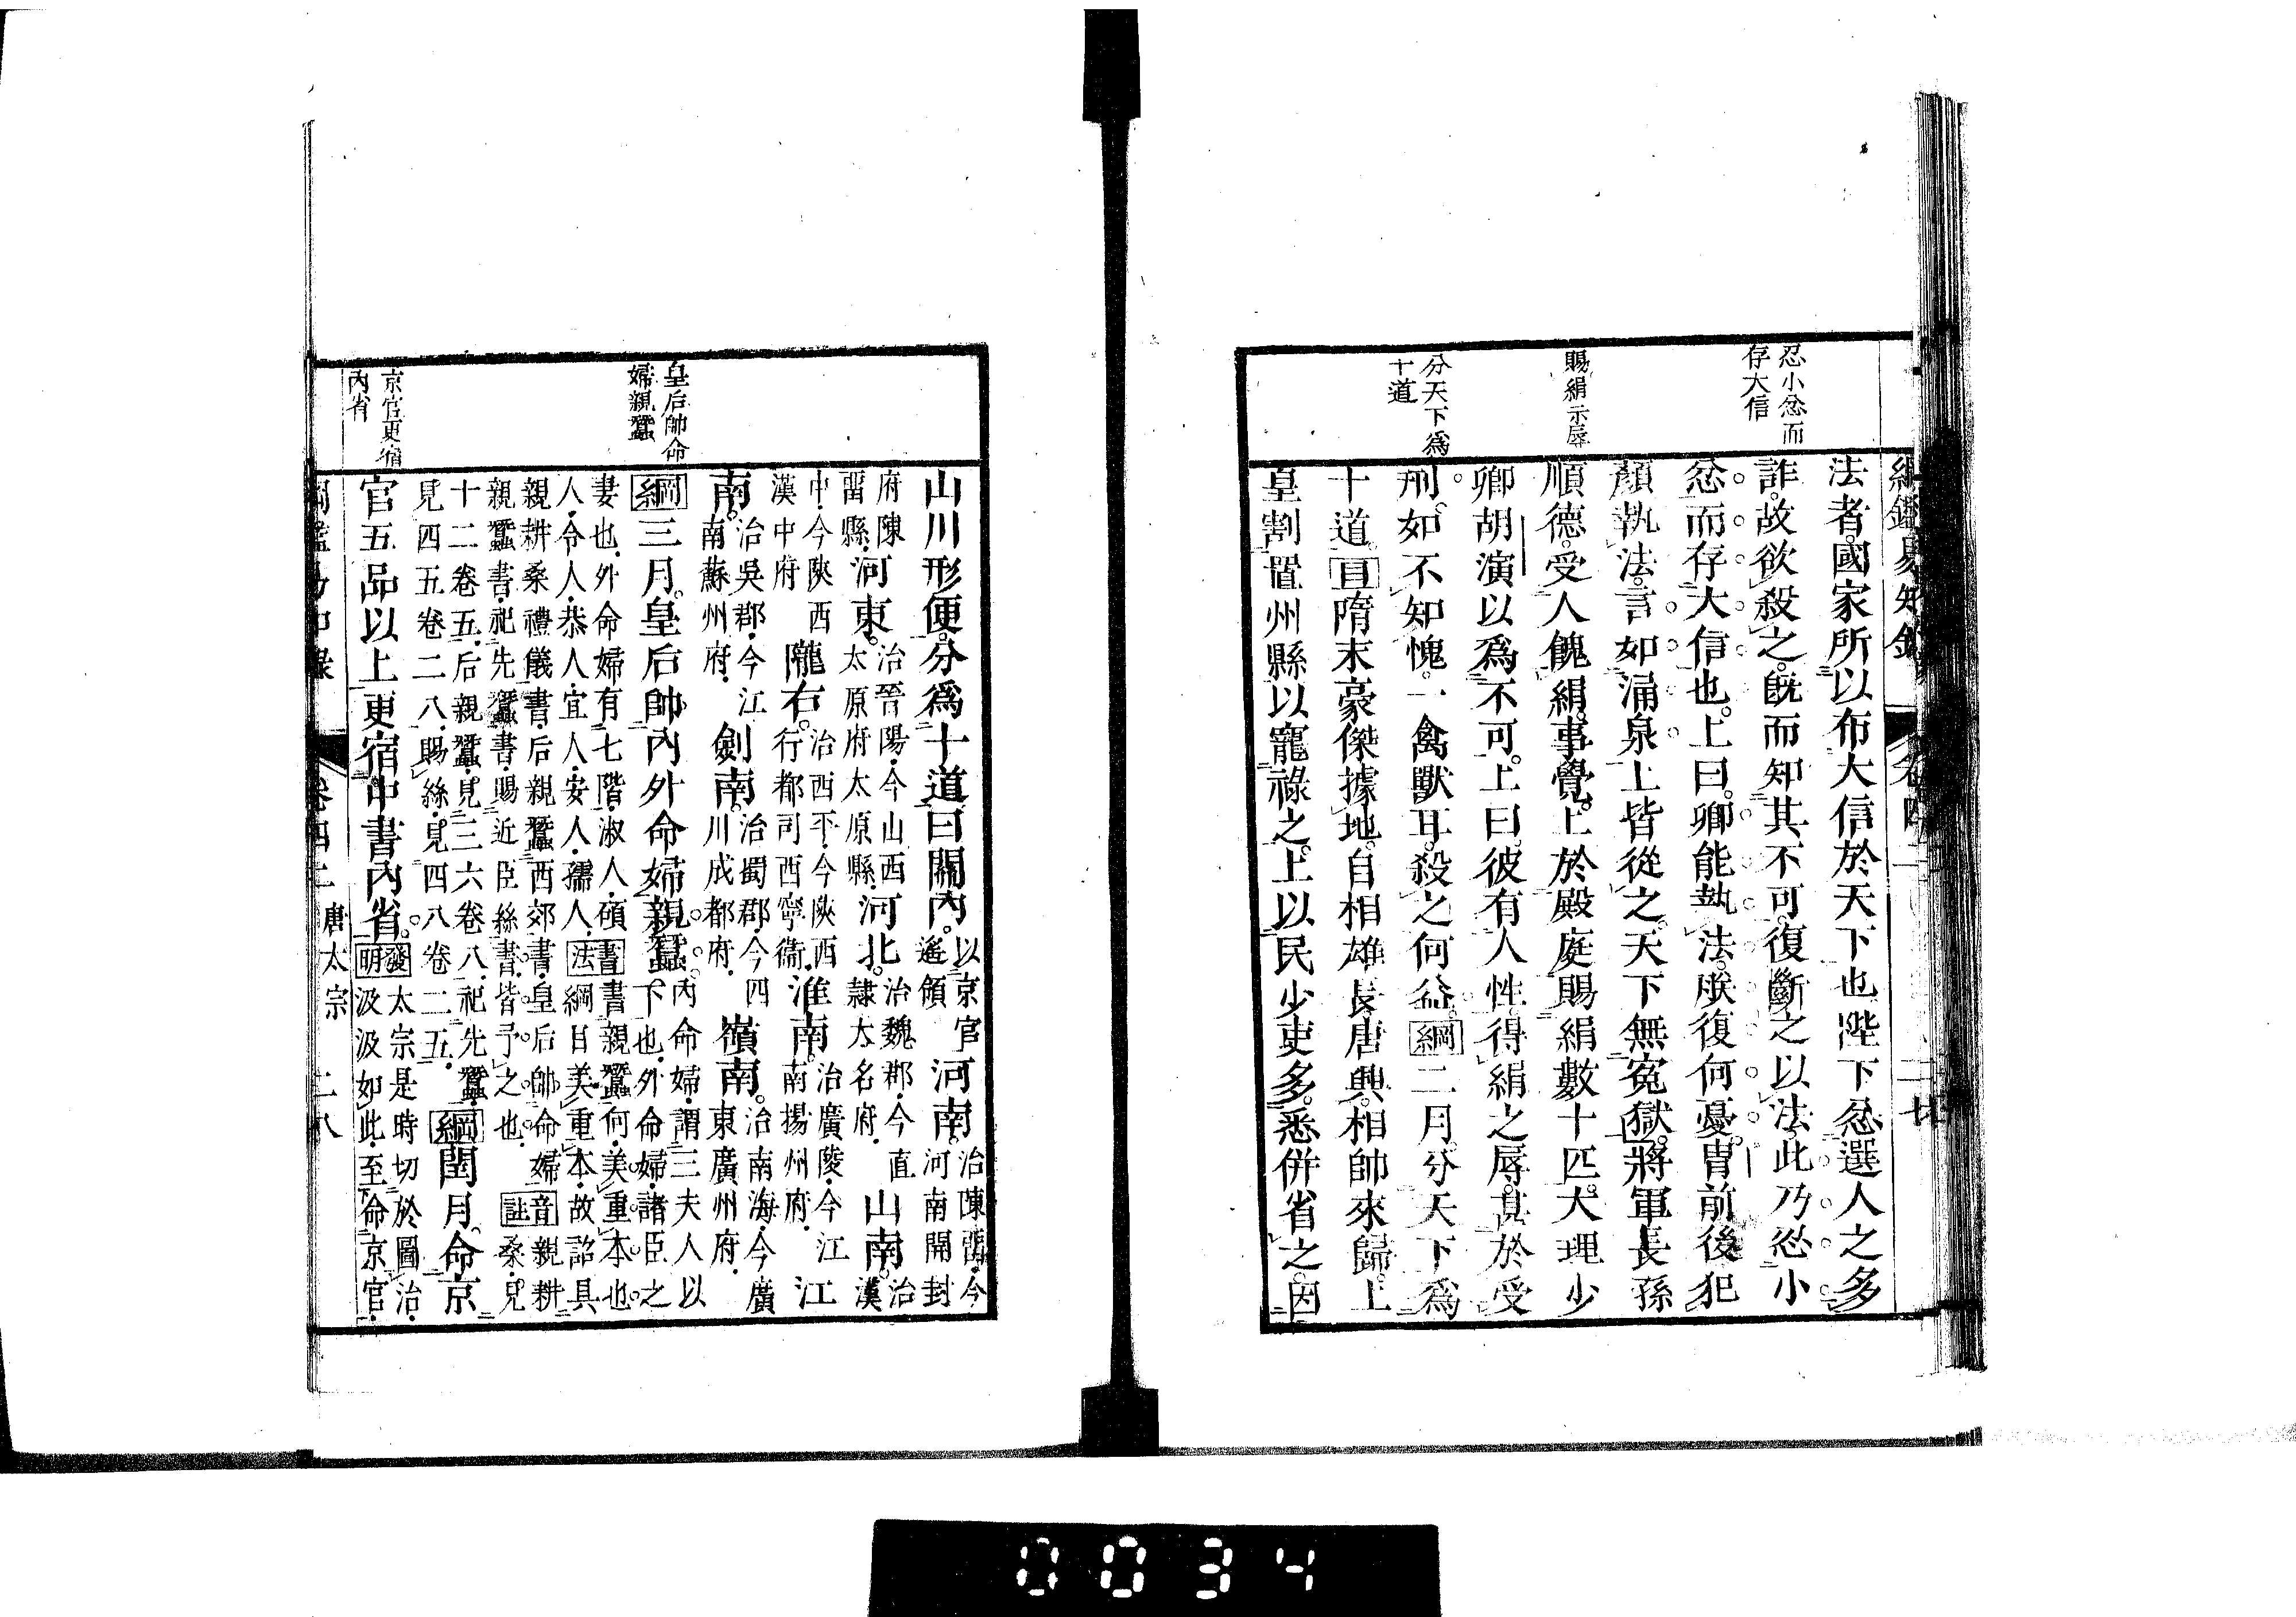 忍小忿而
存大信
賜絹示辱
分天下爲
十道
法者國家所以布大信於天下也陛下忿選人之多
詐故欲殺之既而知其不可復斷之以法此乃忍小
忿而存大信也上曰卿能執法朕復何憂冑前後犯
顏執法言如涌泉上皆從之天下無冤獄將軍長孫
順德受人餽絹事覺上於殿庭賜絹數十匹大理少
卿胡演以爲不可上曰彼有人性得絹之辱甚於受
刑如不知愧一禽獸耳殺之何益綱二月分天下爲
十道目隋末豪傑據地自相雄長唐興相帥來歸上
皇割置州縣以寵祿之上以民少吏多悉併省之因
皇后帥命
婦親蠶
京官更宿
內省
山川形便分爲十道曰關內以京官遙領河南治陳畱今河南開封
府陳畱縣河東治晉陽今山西太原府太原縣河北治魏郡今直隸大名府山南治漢
中今陝西漢中府隴右治西平今陝西行都司西寧衞淮南治廣陵今江南揚州府江
南治吳郡今江南蘇州府劍南治蜀郡今四川成都府嶺南治南海今廣東廣州府
綱三月皇后帥內外命婦親蠶內命婦謂三夫人以下也外命婦諸臣之
妻也外命婦有七階淑人碩人令人恭人宜人安人孺人書法書親蠶何美重本也綱目美重本故詔具
親耕桑禮儀書后親蠶西郊書皇后帥命婦親蠶書祀先蠶書賜近臣絲書皆予之也音註親耕桑見
十二卷五后親蠶見三六卷八祀先蠶見四五卷二八賜絲見四八卷二五綱閏月命京
官五品以上更宿中書內省發明太宗是時切於圖治汲汲如此至命京官
卷四二 唐太宗 二八